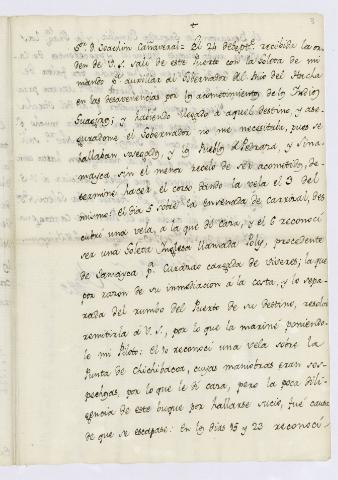 3
+
Sr. D. Joachin Cañaveral = El 24 de Septe. recibida la or-
den de V. S. salí de este Puerto con la Goleta de mi
mando pa. auxiliar al Gobernador del Rio del Hacha
en las desaveniencias por los acometimientos de los Indios
Guagiros; y haviendo llegado à aquel Destino, y ase-
gurandome el Gobernador no me necesitaba, pues se
hallaban sosegados, y los Pueblos de Pedraza, y Sina-
mayca, sin el menor recelo de ser acometidos, de-
terminé hacer el corso dando la vela el 3 del
mismo: El dia 5 sobre la Ensenada de Carrizal, des-
cubri una vela, a la que dí caza, y el 6 reconocí
ser una Goleta Inglesa llamada Poly, procedente
de Jamayca pa. Curazao cargada de viveres; la que
por razon de su inmediacion a la costa, y lo sepa-
rada del rumbo del Puerto de su Destino, resolví
remitirla à V. S., por lo que la mariné poniendo-
le mi Piloto: El 10 reconocí una vela sobre la
Punta de Chichibacoa, cuyas maniobras eran sos-
pechosas, por lo que le dí caza, pero la poca dili-
gencia de este buque por hallarse sucio, fué causa
de que se escapase: En los dias 15 y 23 reconocí-